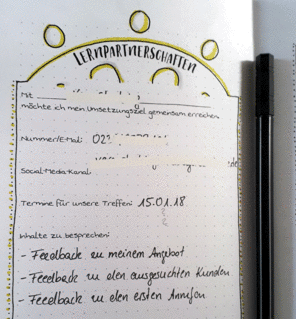 LERNPARTNERSCHAFTEN
Mit
möchte ich mein Umsetzungsziel gemeinsam erreichen.
Nummer/EMail: 02
Social-Media-Kanal: de
Termine für unsere Treffen: 15.01.18
Inhalte zu besprechen:
- Feedback zu meinem Angebot
- Feedback zu den ausgesuchten Kunden
- Feedback zu den ersten Anrufen